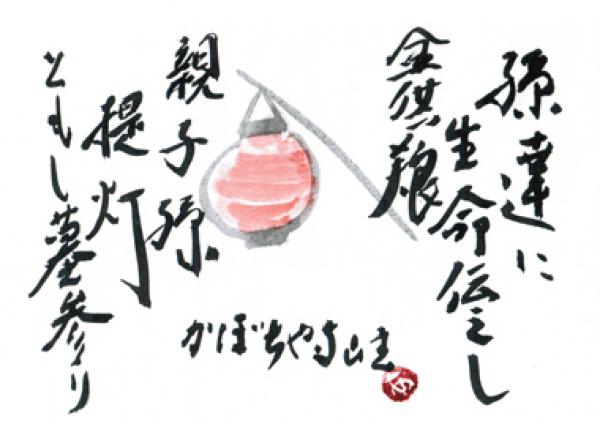 孫達に
生命伝えし
盆供養
親子孫
提灯
ともし墓参り
かぼちゃ寺山主